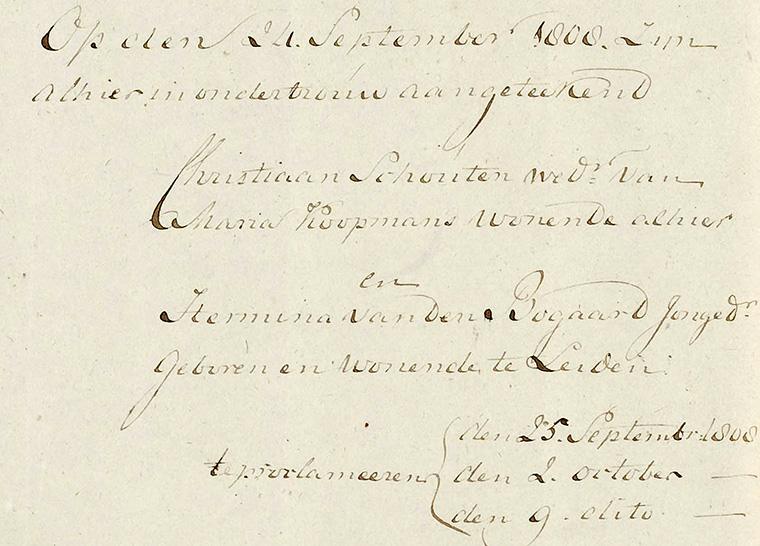 Op den 24. September 1808. Zyn
alhier in ondertrouw aangeteekend
Christiaan Schouten wedr. van
Maria Koopmans wonende alhier
en
Hermina van den Bogaard Jongedr.
Geboren en wonende te Leiden.
te proclameeren
den 25. Septembr. 1808
den 2. october —
den 9. dito —